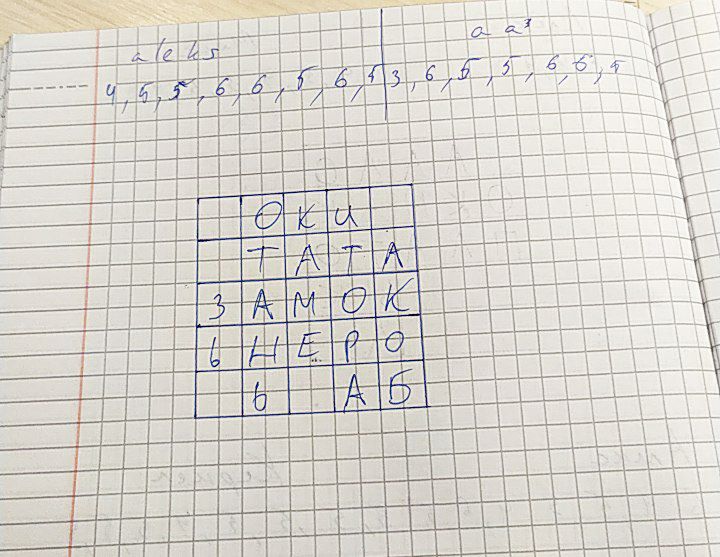 aleks a a³
4, 5, 5, 6, 6, 5, 6, 5 3, 6, 5, 5, 6, 6, 5
О К И
Т А Т А
З А М О К
Ь Н Е Р О
Ь А Б